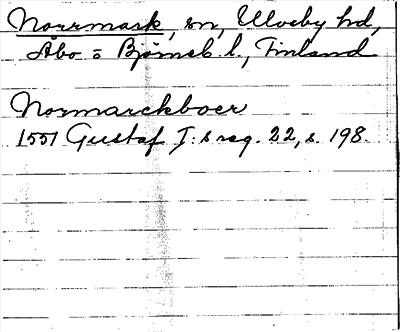 Norrmark, sn, Ulvsby hd,
Åbo = Björneb. l., Finland
Normarckboer
1551 Gustaf I:s reg. 22, s. 198.